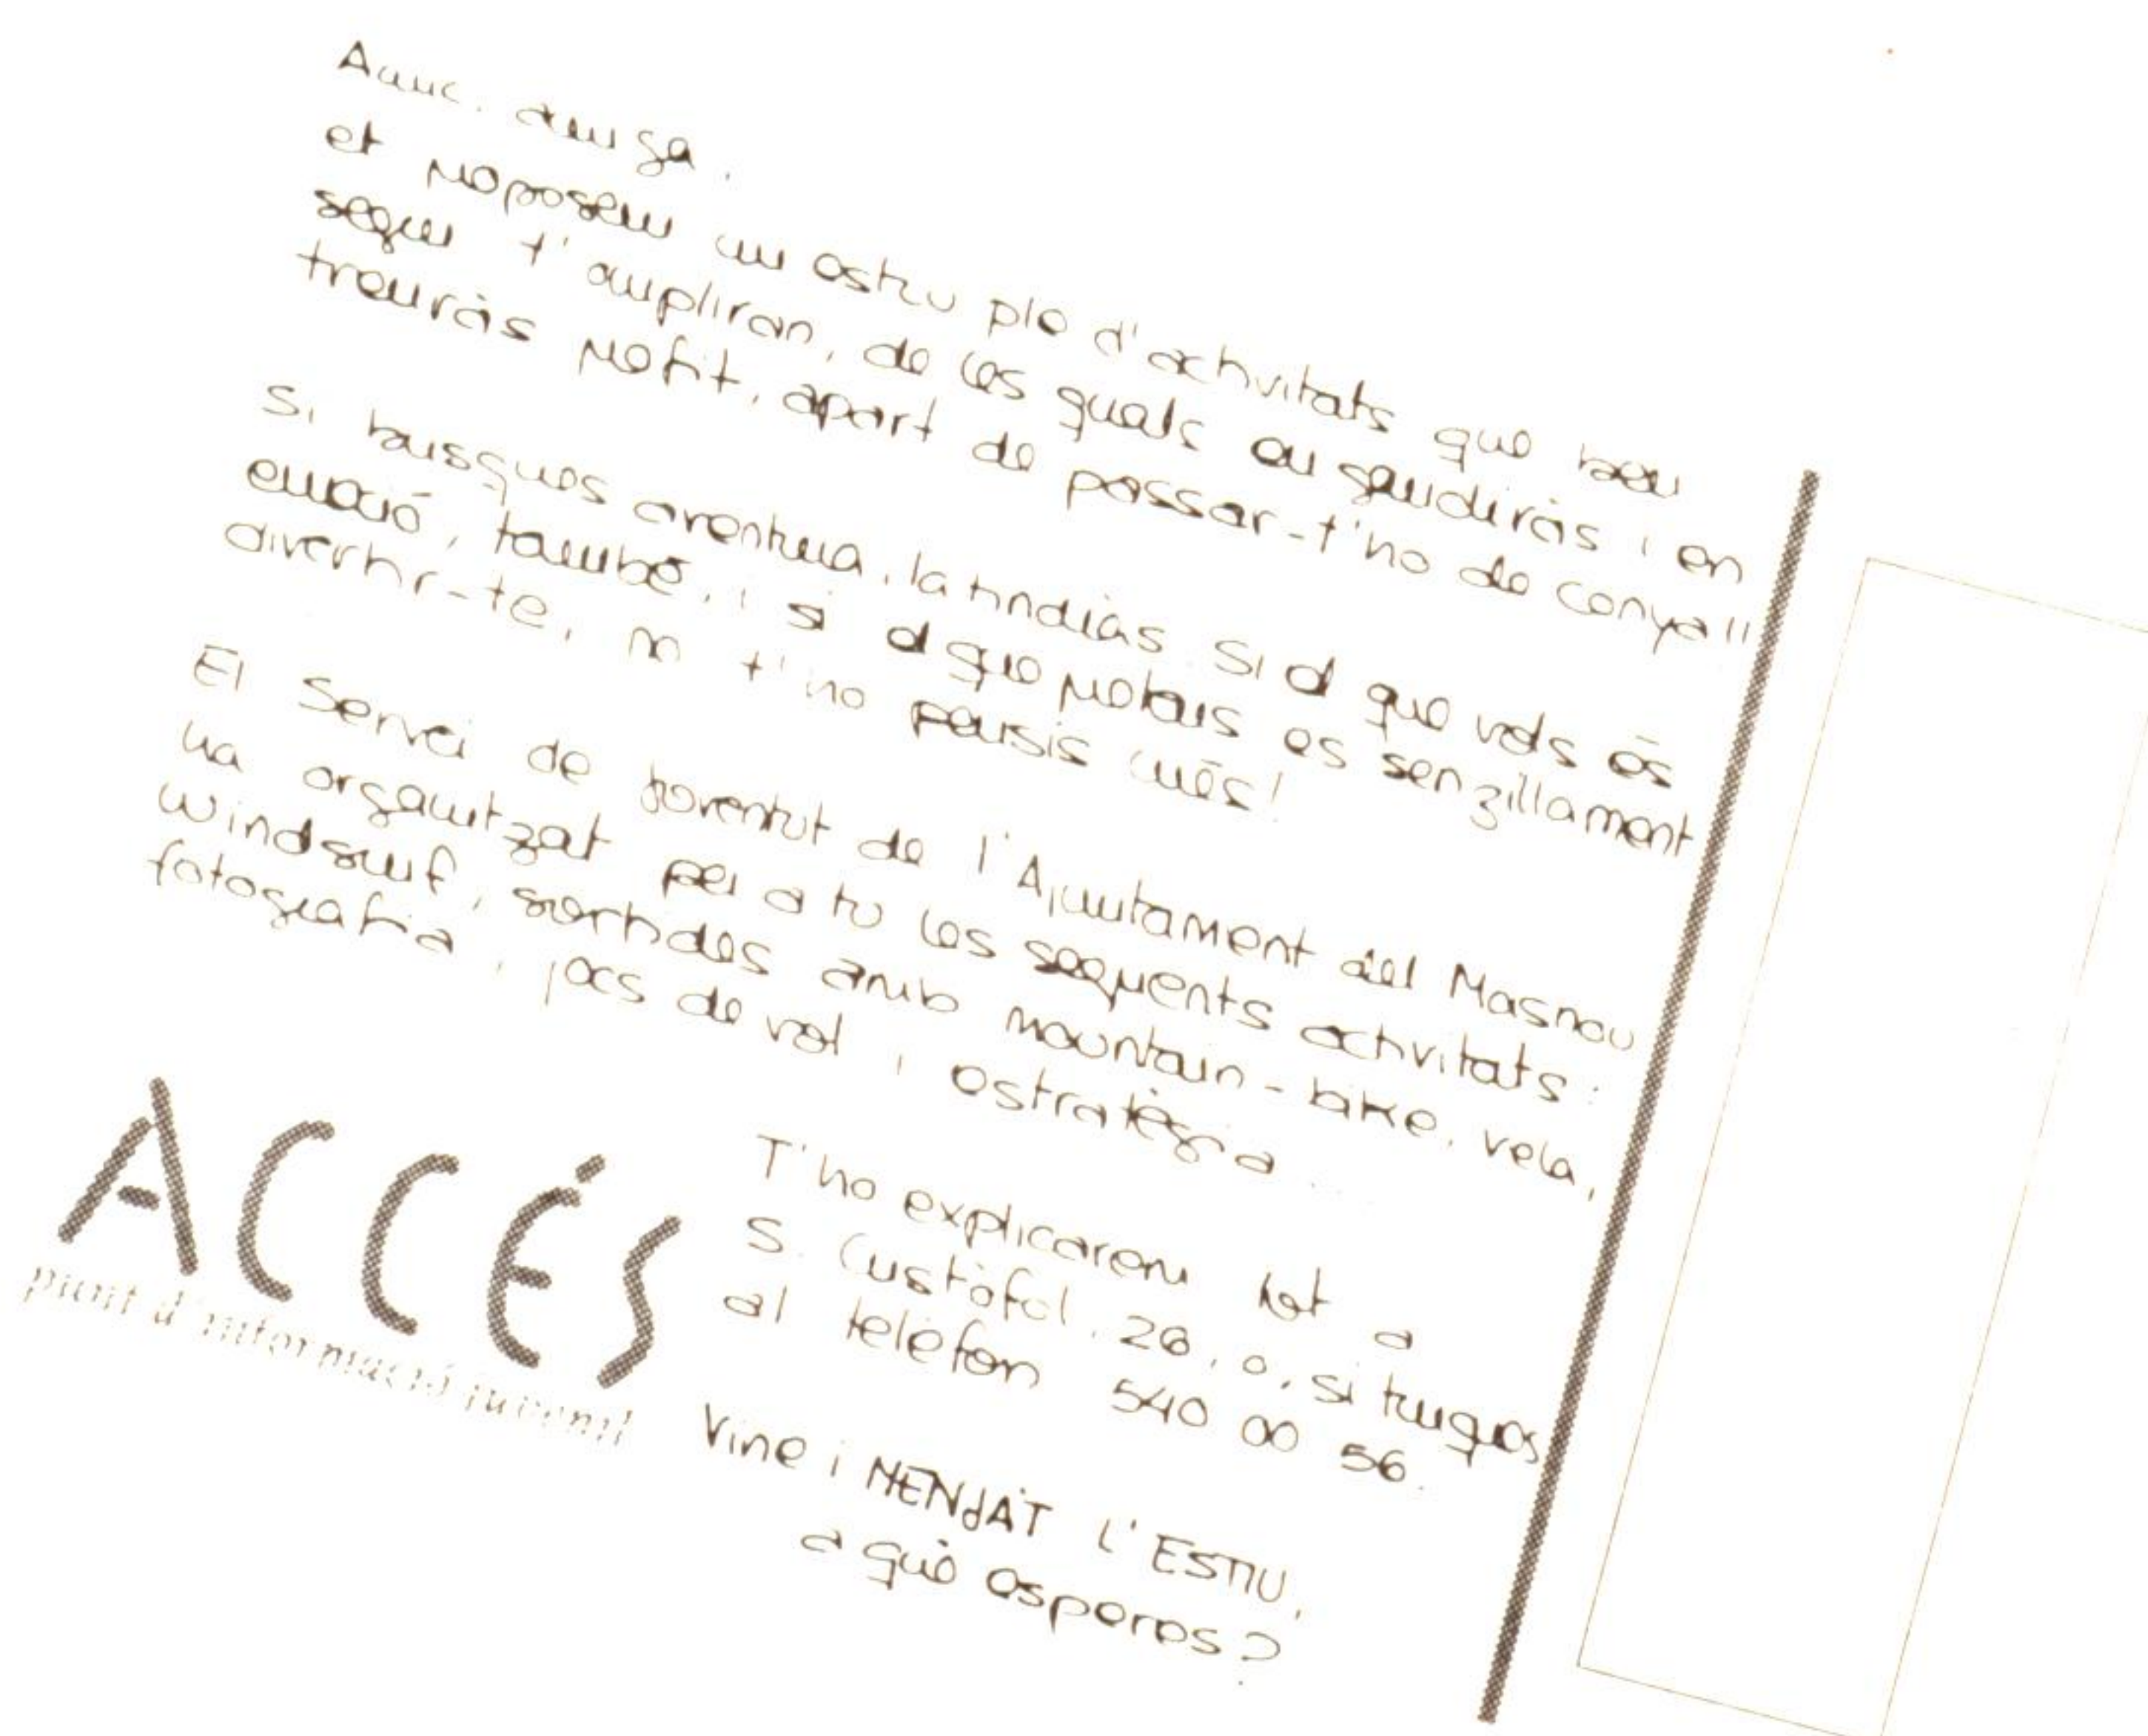 Amic, amiga,
et proposem un estiu ple d'activitats que ben
segur t'ompliran, de les quals en gaudiràs i en
trauràs profit, apart de passar-t'ho de conya!!
Si busques aventura, la tindràs. Si el que vols és
emoció, també, i si el que prefereixes es senzillament
divertir-te, no t'ho pensis més!
El Servei de Joventut de l'Ajuntament del Masnou
ha organitzat per a tu les seguents activitats:
windsurf, sortides amb mountain-bike, vela,
fotografia, jocs de rol i estratègia...
ACCÉS
punt d'informació juvenil
T'ho explicarem tot a
S. Cristòfol, 26, o, si truques
al telèfon 540 00 56.
Vine i MENJA'T L'ESTIU,
a què esperes?